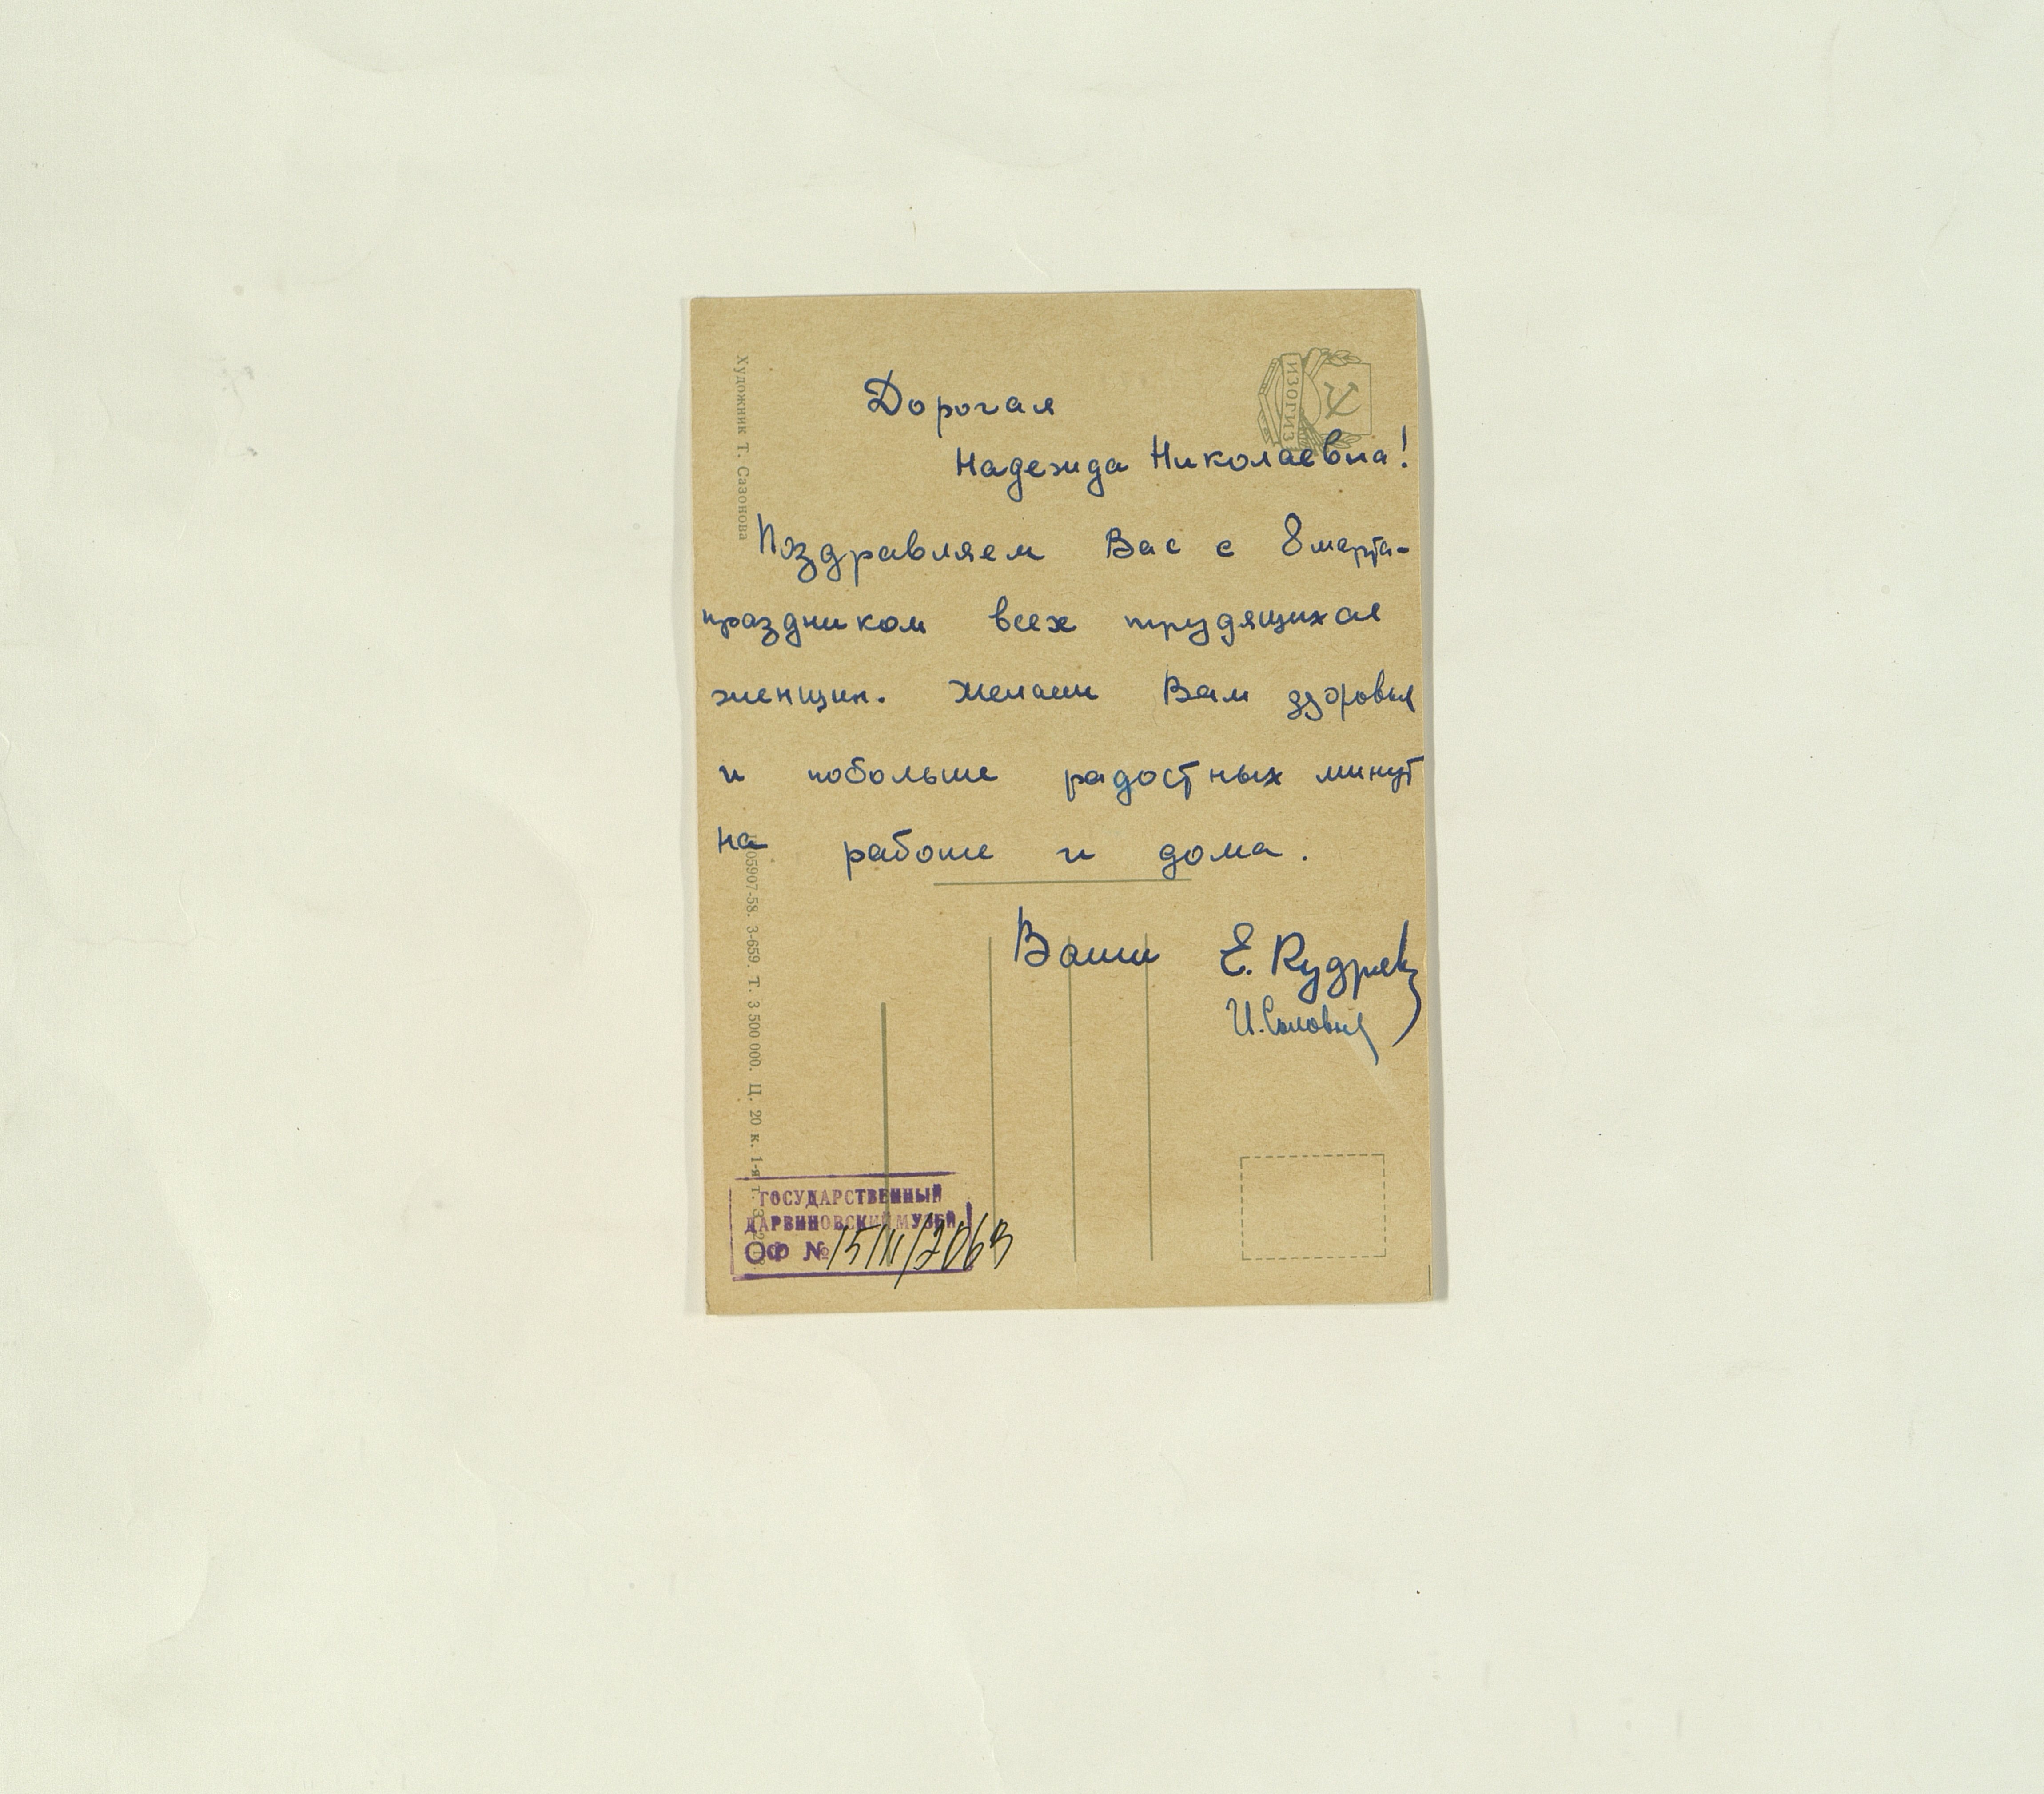 Художник Т. Сазонова
ИЗОГИЗ
Дорогая
Надежда Николаевна!
Поздравляем Вас с 8 марта-
праздником всех трудящихся
женщин. Желаем Вам здоровья
и побольше радостных минут
на работе и дома.
Ваши Е. Кудряв
И. Соловья
05907-58. З-659. Т. 3 500 000. Ц. 20 к. 1-я т.
ГОСУДАРСТВЕННЫЙ
ДАРВИНОВСКИЙ МУЗЕЙ
ОФ №